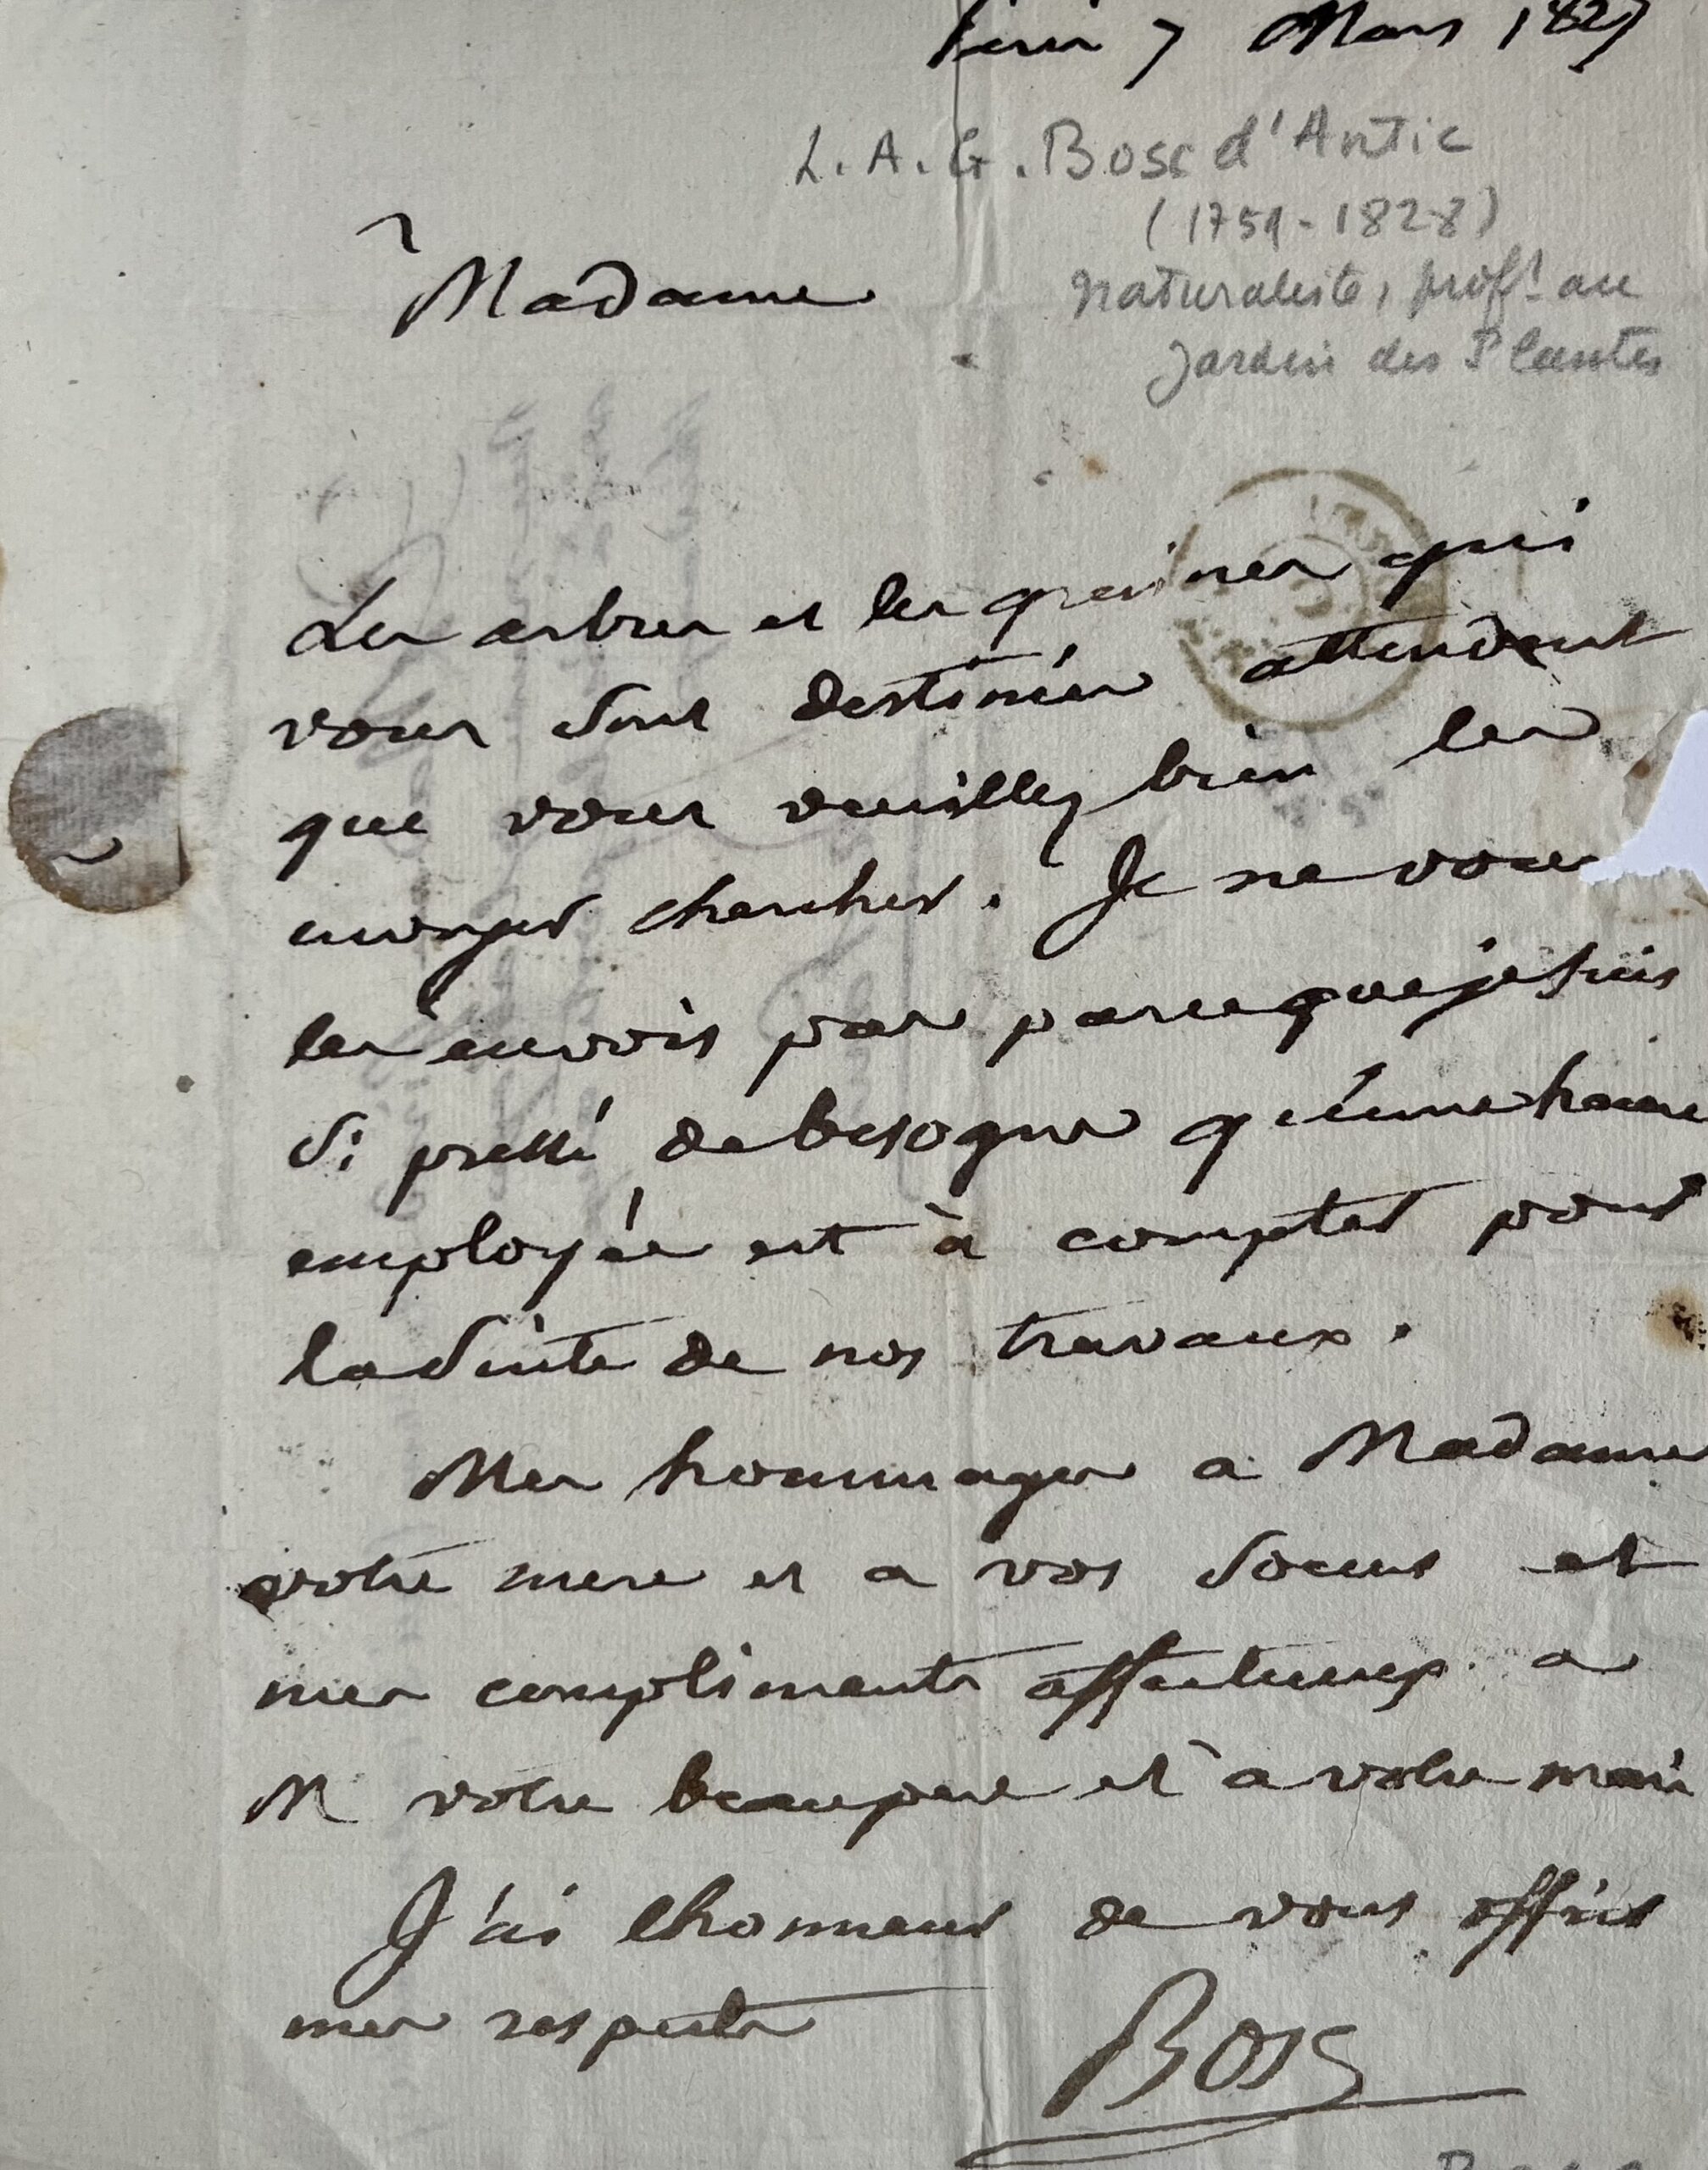 Paris 7 Mars 1827
L. A. G. Bosc d'Antic
(1759-1828)
naturaliste, profr au
Jardin des Plantes
Madame
Les arbres et les graines qui
vous sont destinées attendent
que vous veuillez bien les
envoyer chercher. Je ne vous
les envois pas parceque je suis
si pressé de besogne qu'une heure
employée est à compter pour
la suite de nos travaux.
Mes hommages a Madame
votre mere et a vos soeurs et
mes compliments affectueux a
M votre beaupere et à votre mari
J'ai lhonneur de vous offrir
mes respects
Bosc